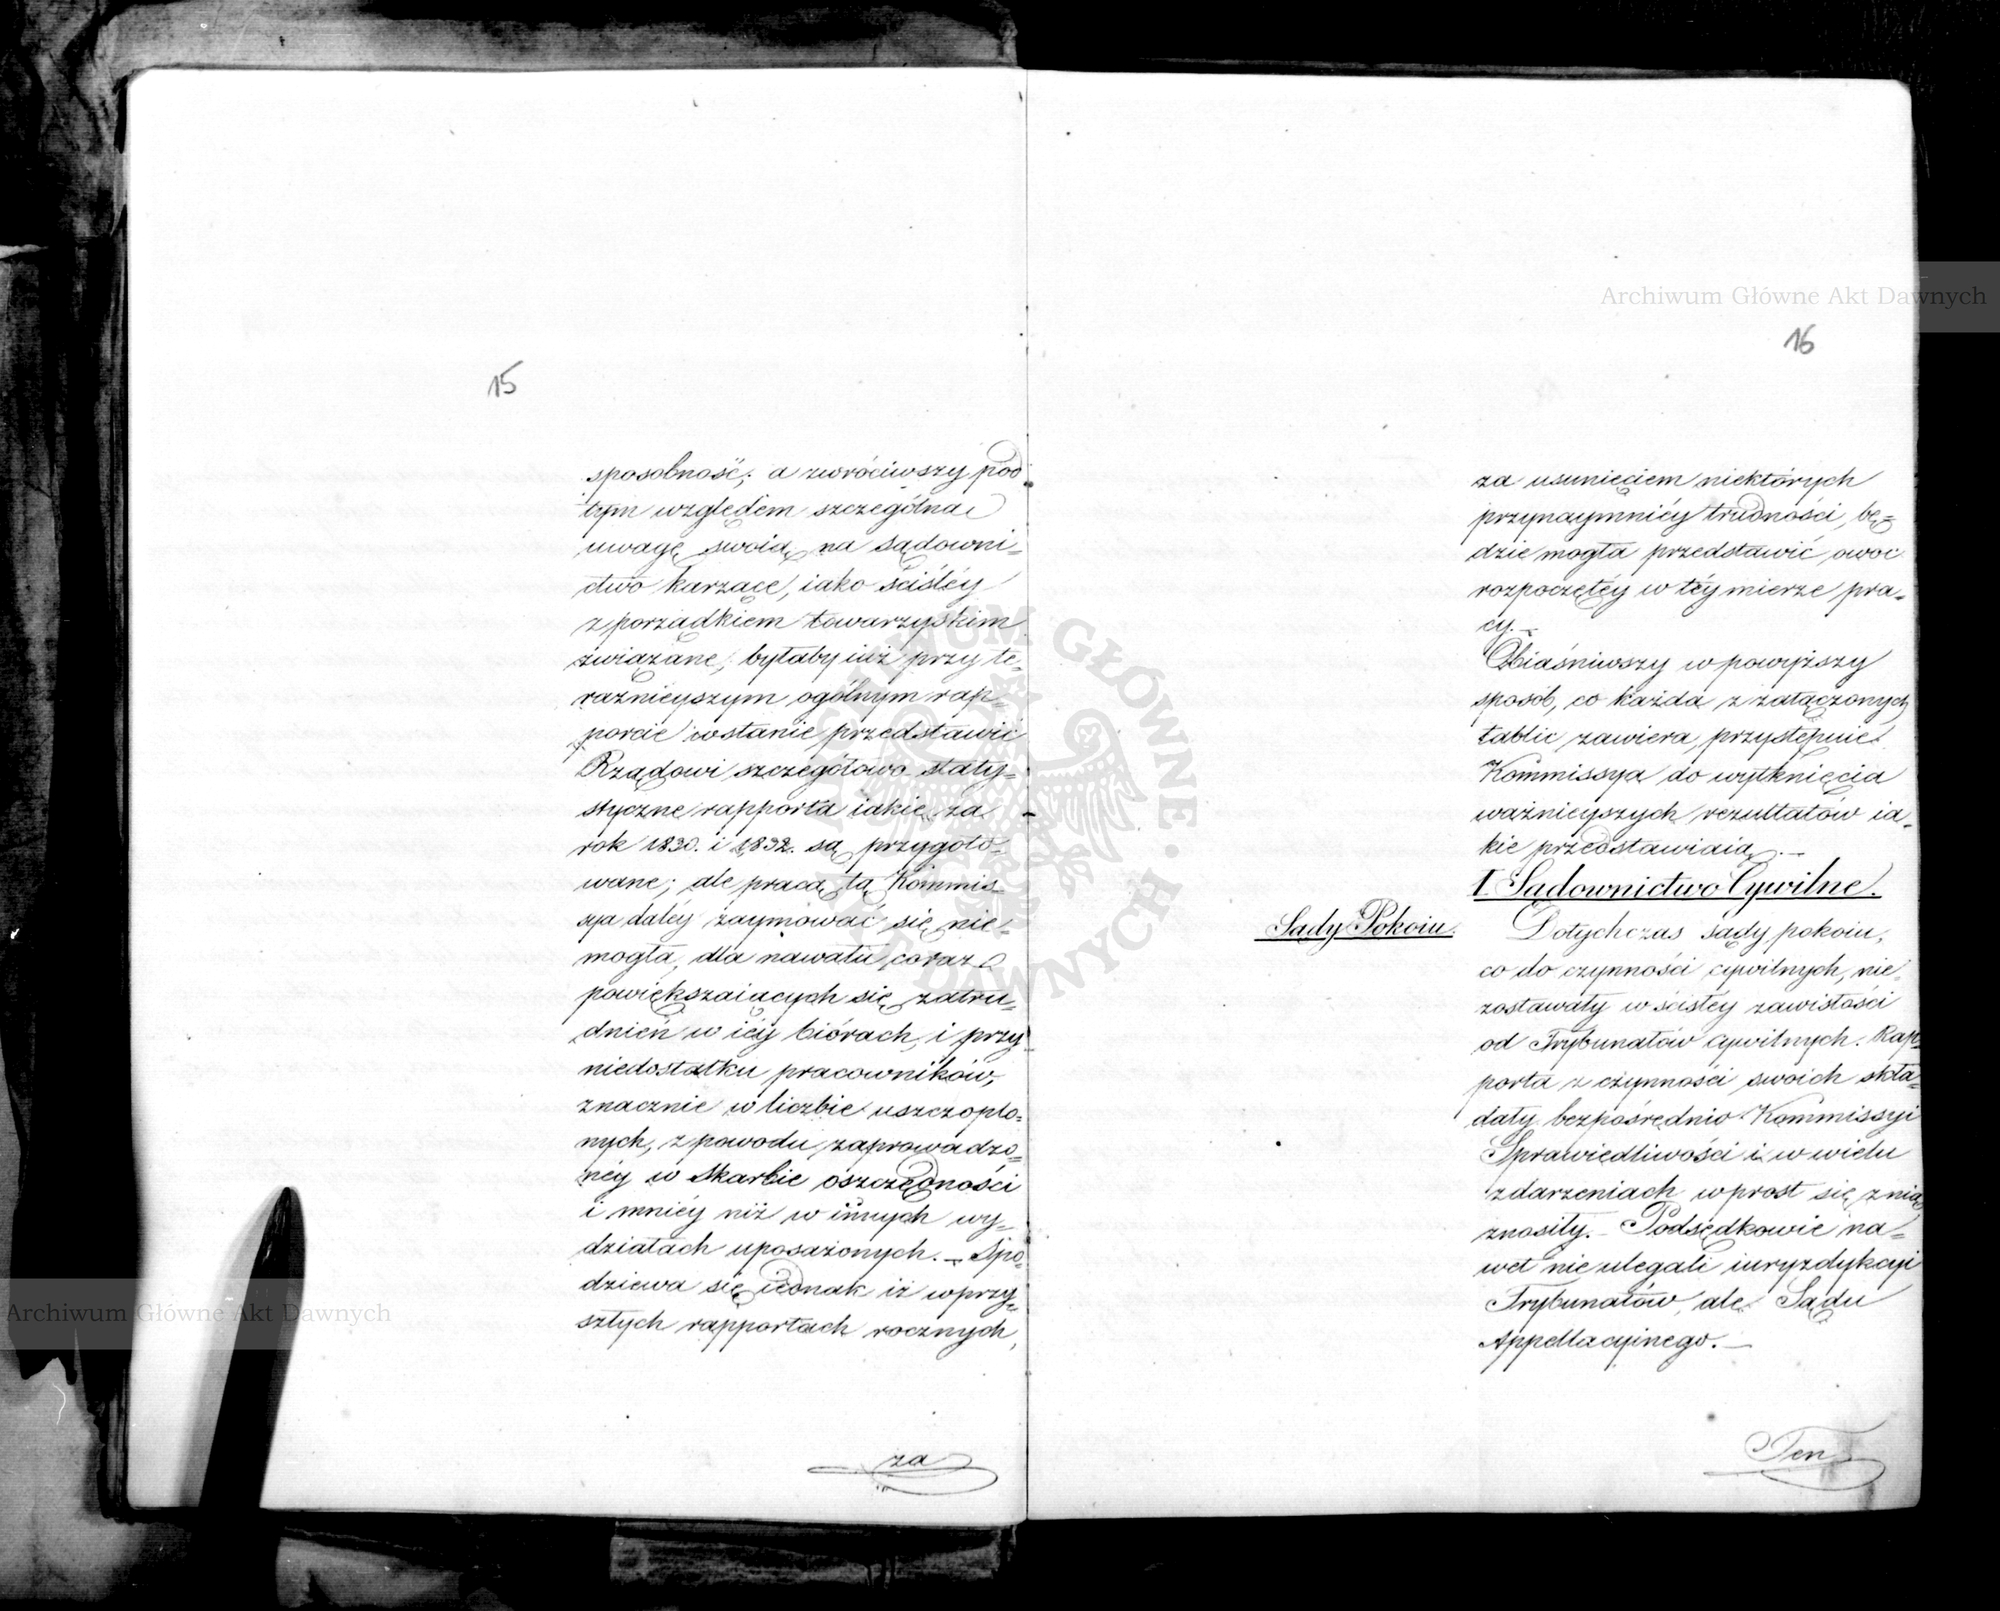 15
sposobność; a zwróciwszy pod
tym względem szczególną
uwagę swoią na sądowni-
ctwo karzące, iako ściśléy
z porządkiem towarzyskim
związane, byłaby iuż przy te-
raźnieyszym ogólnym rap-
porcie wstanie przedstawić
Rządowi szczegółowo staty-
styczne rapporta iakie za
rok 1830. i 1832. są przygoto-
wane; ale pracą tą Kommis
sya daléy zaymować się nie
mogła, dla nawału coraz
powiększaiących się zatru-
dnień w iéy biórach, i przy
niedostatku pracowników,
znacznie w liczbie uszczuplo-
nych, z powodu zaprowadzo-
néy w Skarbie oszczędności
i mniéy niż w innych wy-
działach uposażonych. – Spo-
dziewa się iednak iż w przy-
szłych rapportach rocznych,
za
16
za usunięciem niektórych
przynaymniéy trudności, bę-
dzie mogła przedstawić owoc
rozpoczętéy w téy mierze pra-
cy. –
Obiaśniwszy w powyższy
sposób, co każda z załączonych
tablic zawiera, przystępuie
Kommissya do wytknięcia
ważnieyszych rezultatów ia-
kie przedstawiaią. –
I. Sądownictwo Cywilne.
Sądy Pokoiu.
Dotychczas sądy pokoiu,
co do czynności cywilnych, nie
zostawały w ścisłéy zawisłości
od Trybunałów cywilnych. Rap-
porta z czynności swoich skła-
dały bezpośrednio Kommissyi
Sprawiedliwości i w wielu
zdarzeniach wprost się z nią
znosiły. – Podsędkowie na-
wet nie ulegali iuryzdykcyi
Trybunałów, ale Sądu
Appellacyinego. –
Ten
Archiwum Główne Akt Dawnych
Archiwum Główne Akt Dawnych